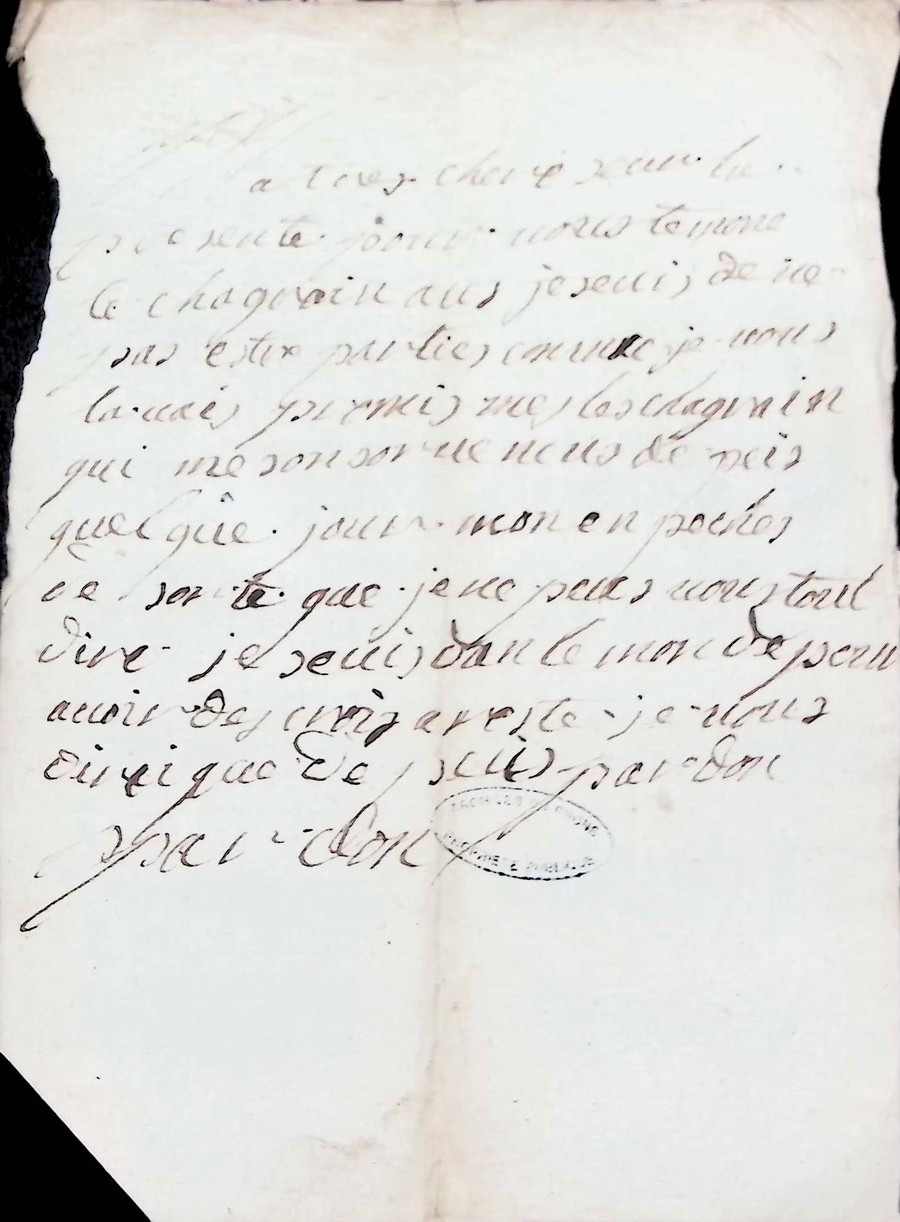 a tres chere seur la
presente pour vous temone
le chagrain aus je seuis de ne
pas estre parties comme je vous
lavais promis mes les chagrain
qui me son sorvenous de peis
quelque jour mon en peches
de sorte que je ne peus vous tout
dire je seuis dan le monde pour
avoir des crois a reste je vous
dirai que de peuis pardon
pardon
ARCHIVES DU RHONE
PROPRIETE PUBLIQUE